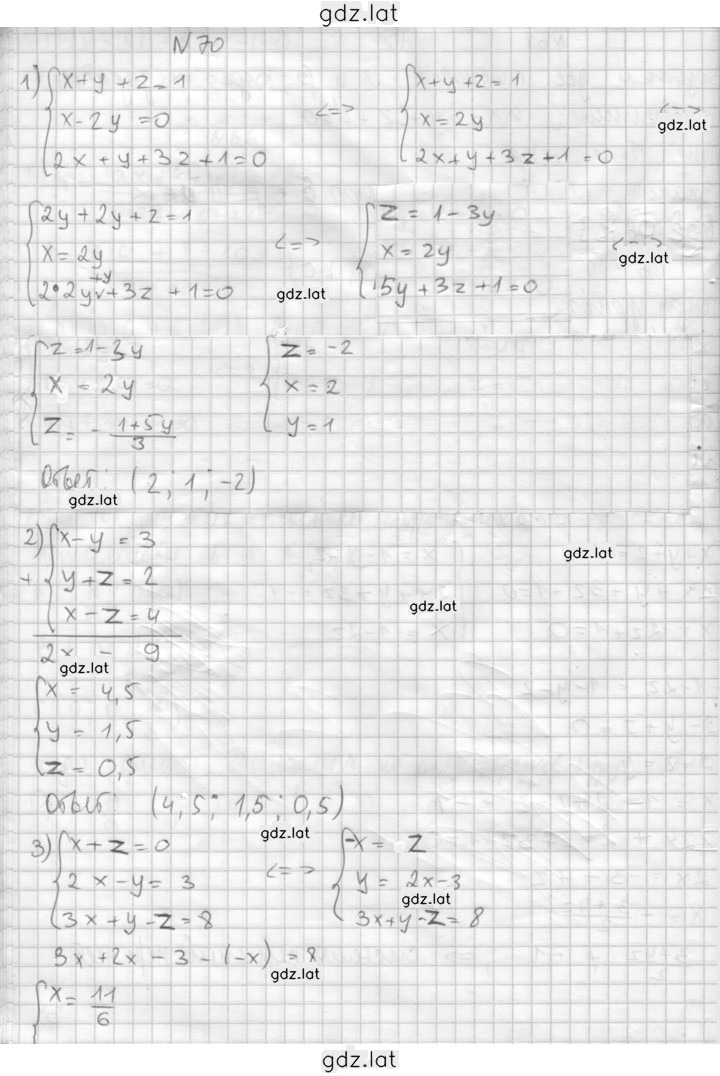 gdz.lat
N 70
1) { x + y + z = 1
x - 2y = 0
2x + y + 3z + 1 = 0
<=>
{ x + y + z = 1
x = 2y
2x + y + 3z + 1 = 0
<-->
gdz.lat
{ 2y + 2y + z = 1
x = 2y
2•2y +y + 3z + 1 = 0
<=>
gdz.lat
{ z = 1 - 3y
x = 2y
5y + 3z + 1 = 0
<-->
gdz.lat
{ z = 1 - 3y
x = 2y
z = - (1 + 5y)/3
{ z = -2
x = 2
y = 1
Ответ: (2; 1; -2)
gdz.lat
2) { x - y = 3
+ y + z = 2
x - z = 4
2x - 9
gdz.lat
gdz.lat
gdz.lat
{ x = 4,5
y = 1,5
z = 0,5
Ответ: (4,5; 1,5; 0,5)
gdz.lat
3) { x + z = 0
2x - y = 3
3x + y - z = 8
<=>
{ -x = z
y = 2x - 3
gdz.lat
3x + y - z = 8
3x + 2x - 3 - (-x) = 8
gdz.lat
{ x = 11/6
gdz.lat